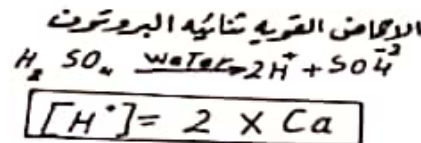 الاحماض القويه ثنائيه البروتون
H₂ SO₄ water→ 2H⁺ + SO₄⁻²
[H⁺] = 2 X Ca